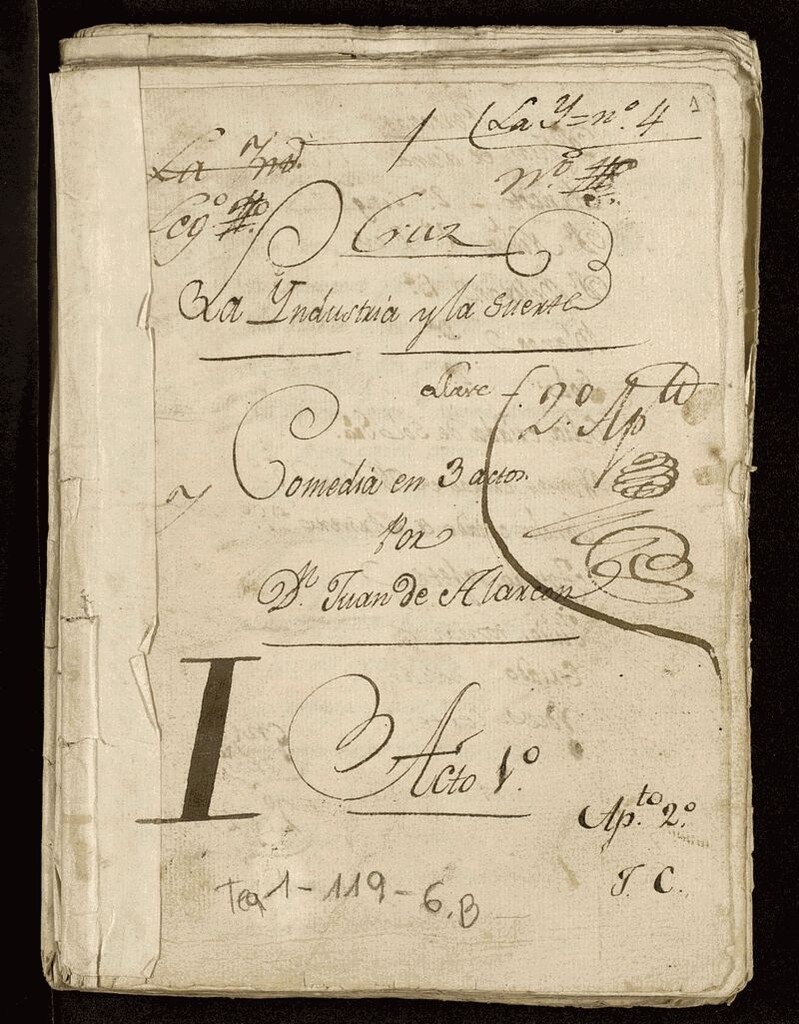 La Y=nº. 4
1
La Ynd.
Nº
Leg.º
Cruz
La Yndustria y la Suerte
2º. Ap.to
Comedia en 3 actos.
Por
D.n Juan de Alarcon
I
Acto 1º.
Ap.to 2.º
J. C.
Tea 1-119-6, B